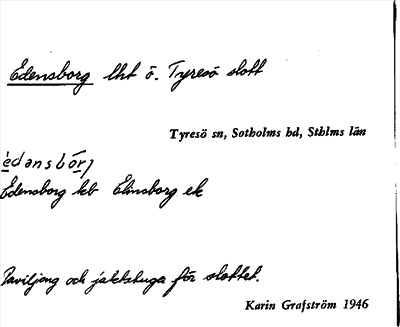 Edensborg lht ö. Tyresö slott
Tyresö sn, Sotholms hd, Sthlms län
èdənsbór̩j
Edensborg kb Elmsborg ek
Paviljong och jaktstuga för slottet.
Karin Grafström 1946